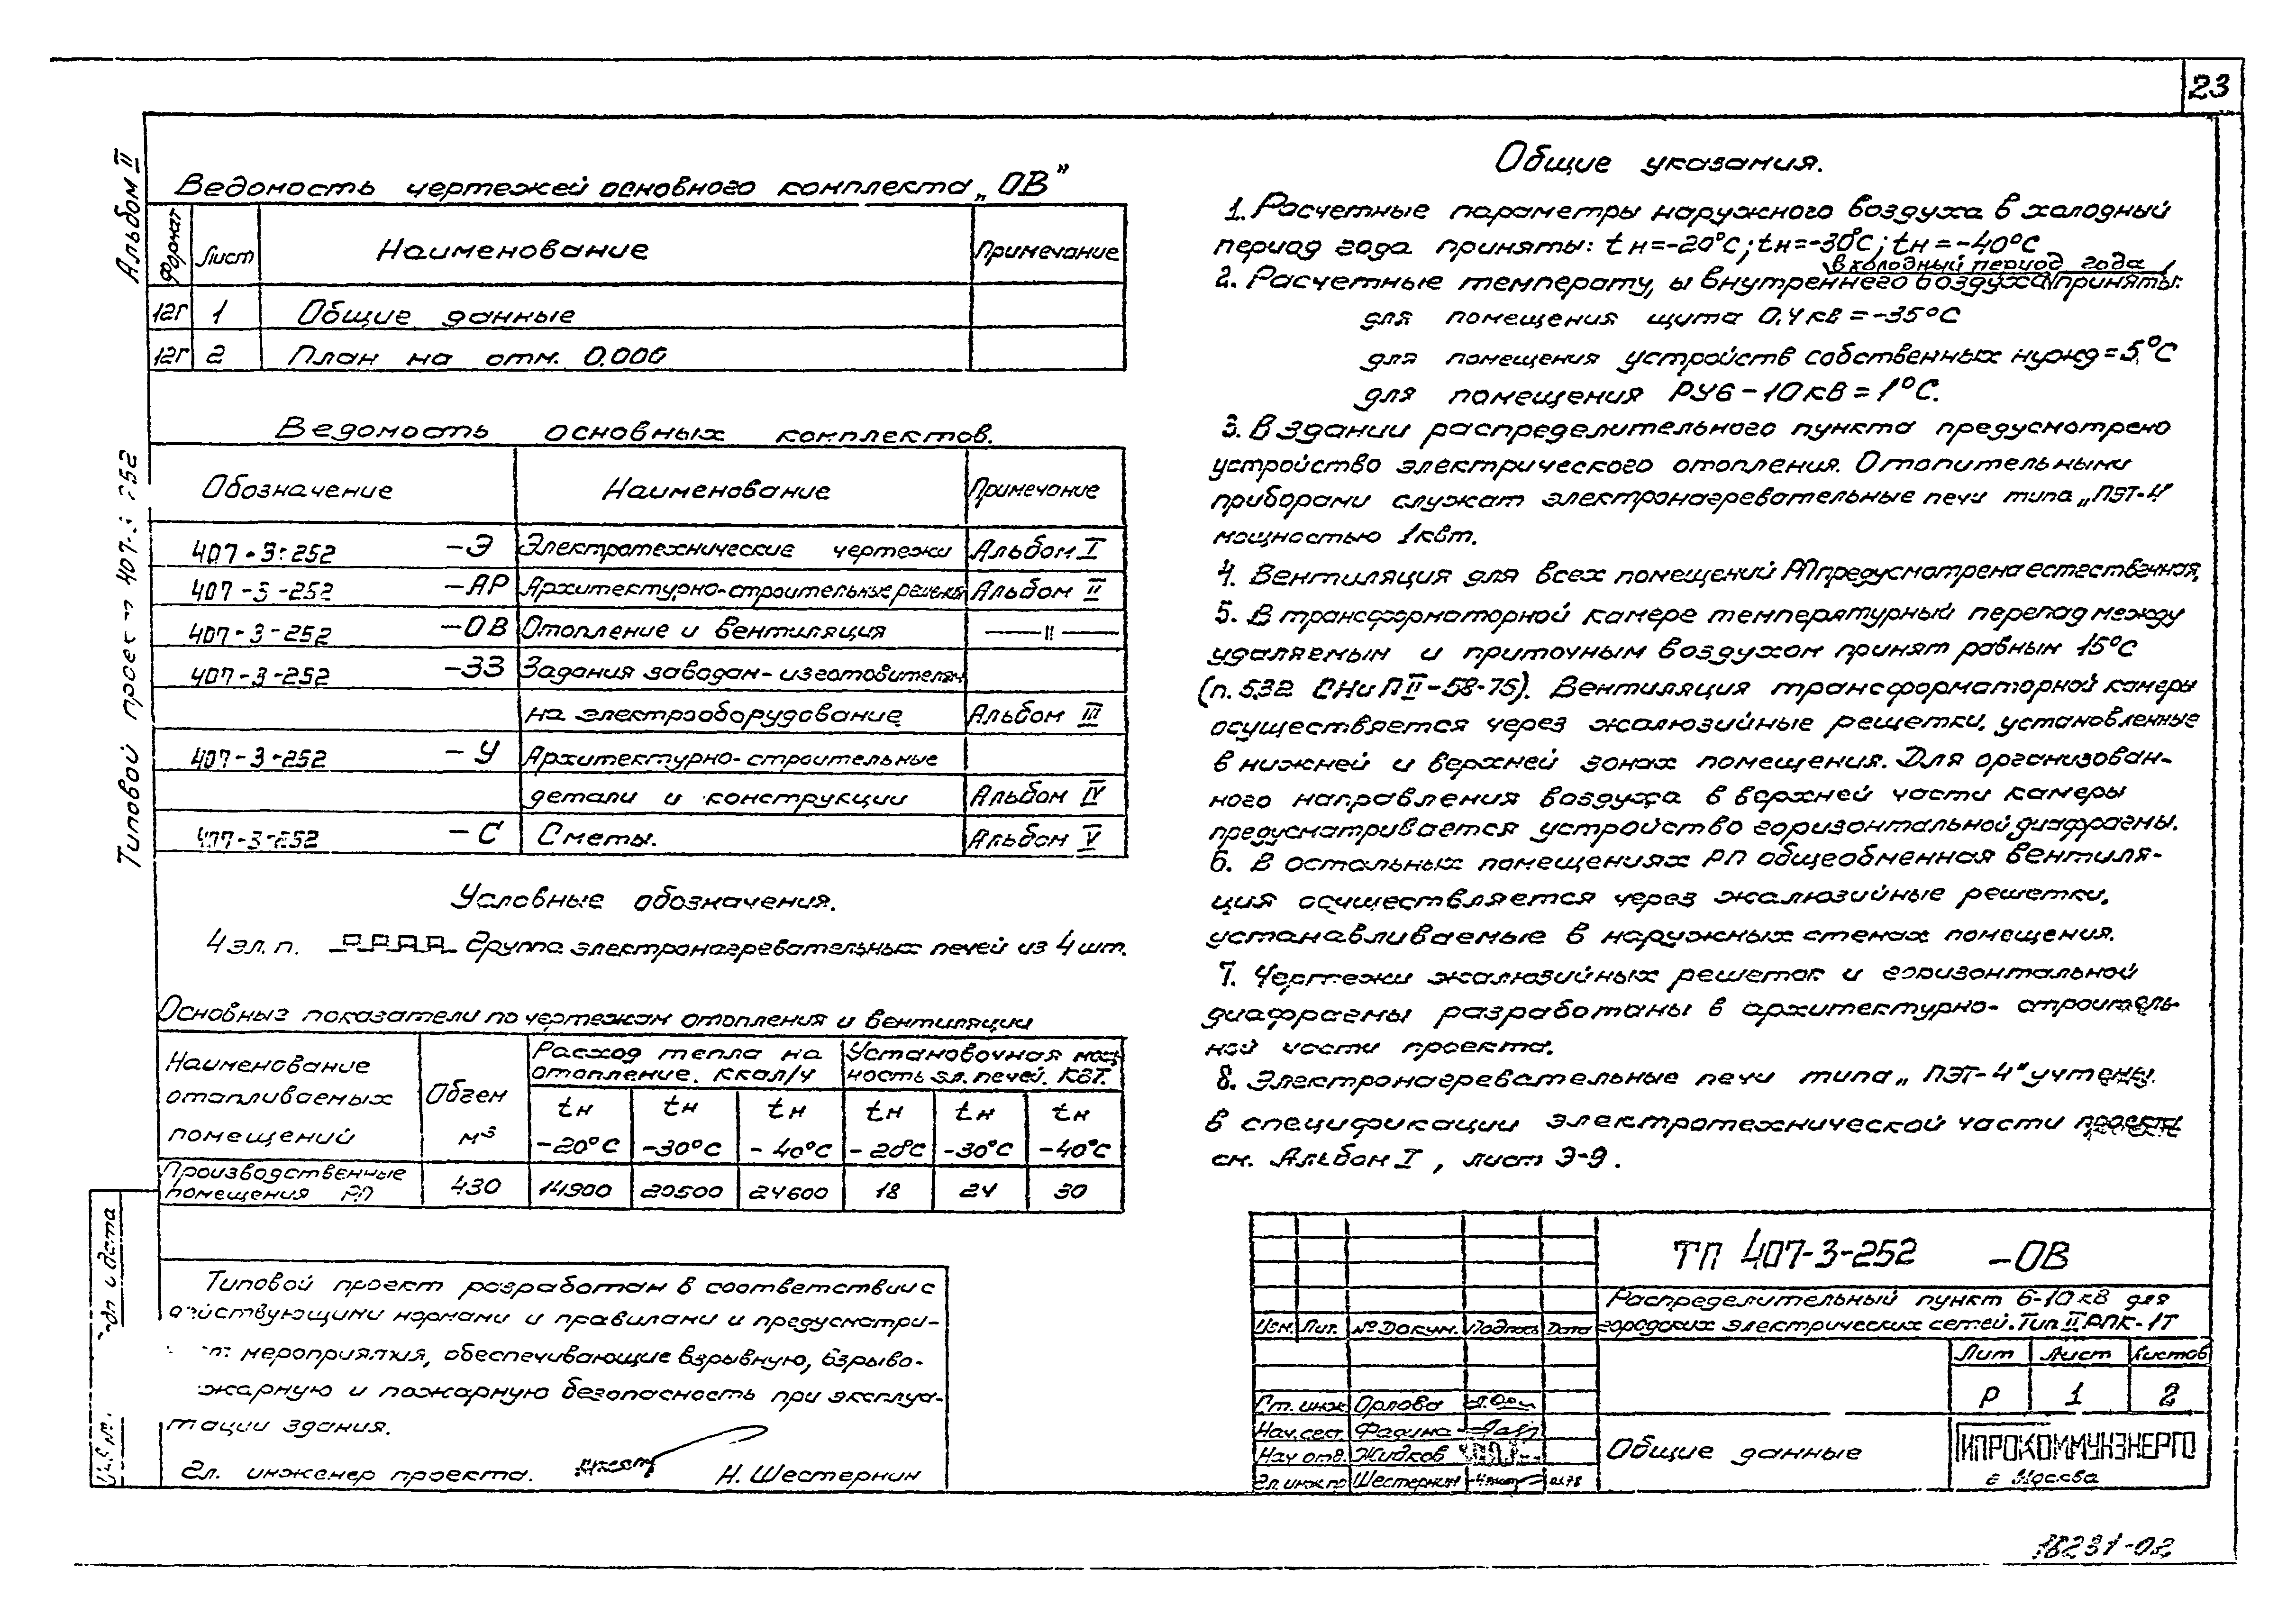 23
Альбом II
Типовой проект 407-3-252
Ведомость чертежей основного комплекта „ОВ"
Формат Лист Наименование Примечание
12Г 1 Общие данные
12Г 2 План на отм. 0.000
Ведомость основных комплектов.
Обозначение Наименование Примечание
407-3-252 -Э Электротехнические чертежи Альбом I
407-3-252 -АР Архитектурно-строительные решения Альбом II
407-3-252 -ОВ Отопление и вентиляция —"—
407-3-252 -ЗЗ Задания заводам-изготовителям
на электрооборудование Альбом III
407-3-252 -У Архитектурно-строительные
детали и конструкции Альбом IV
407-3-252 -С Сметы. Альбом V
Условные обозначения.
4 эл. п. Группа электронагревательных печей из 4 шт.
Основные показатели по чертежам отопления и вентиляции
Наименование отапливаемых помещений
Объем м³
Расход тепла на отопление. ккал/ч
Установочная мощность эл. печей. КВТ.
tн -20°С tн -30°С tн -40°С tн -20°С tн -30°С tн -40°С
Производственные
помещения РП 430 14900 20500 24600 18 24 30
Типовой проект разработан в соответствии с
действующими нормами и правилами и предусматри-
мероприятия, обеспечивающие взрывную, взрыво-
жарную и пожарную безопасность при эксплуа-
тации здания.
Гл. инженер проекта. Н. Шестернин
Общие указания.
1. Расчетные параметры наружного воздуха в холодный
период года приняты: tн=-20°С; tн=-30°С; tн=-40°С
в холодный период года
2. Расчетные температу,ы внутреннего воздуха приняты:
для помещения щита 0,4 кв = -35°С
для помещения устройств собственных нужд = 5°С
для помещения РУ6-10 кВ = 1°С.
3. В здании распределительного пункта предусмотрено
устройство электрического отопления. Отопительными
приборами служат электронагревательные печи типа „ПЭТ-4"
мощностью 1 квт.
4. Вентиляция для всех помещений РП предусмотрена естественная.
5. В трансформаторной камере температурный перепад между
удаляемым и приточным воздухом принят равным 15°С
(п. 5.32 СНиП II-58-75). Вентиляция трансформаторной камеры
осуществляется через жалюзийные решетки, установленные
в нижней и верхней зонах помещения. Для организован-
ного направления воздуха в верхней части камеры
предусматривается устройство горизонтальной диафрагмы.
6. В остальных помещениях РП общеобменная вентиля-
ция осуществляется через жалюзийные решетки,
устанавливаемые в наружных стенах помещения.
7. Чертежи жалюзийных решеток и горизонтальной
диафрагмы разработаны в архитектурно-строитель-
ной части проекта.
8. Электронагревательные печи типа „ПЭТ-4" учтены
в спецификации электротехнической части проекта
см. Альбом I, лист Э-9.
ТП 407-3-252 -ОВ
Распределительный пункт 6-10 кв для
городских электрических сетей. Тип II РПК-1Т
Изм. Лит. № Докум. Подпись Дата
Лит Лист Листов
Р 1 2
Ст. инж Орлова
Нач. сект. Фадина
Нач отд. Жидков
Гл. инж. пр Шестернин
Общие данные
ГИПРОКОММУНЭНЕРГО
г Москва
Инв №
дп и дата
18231-02